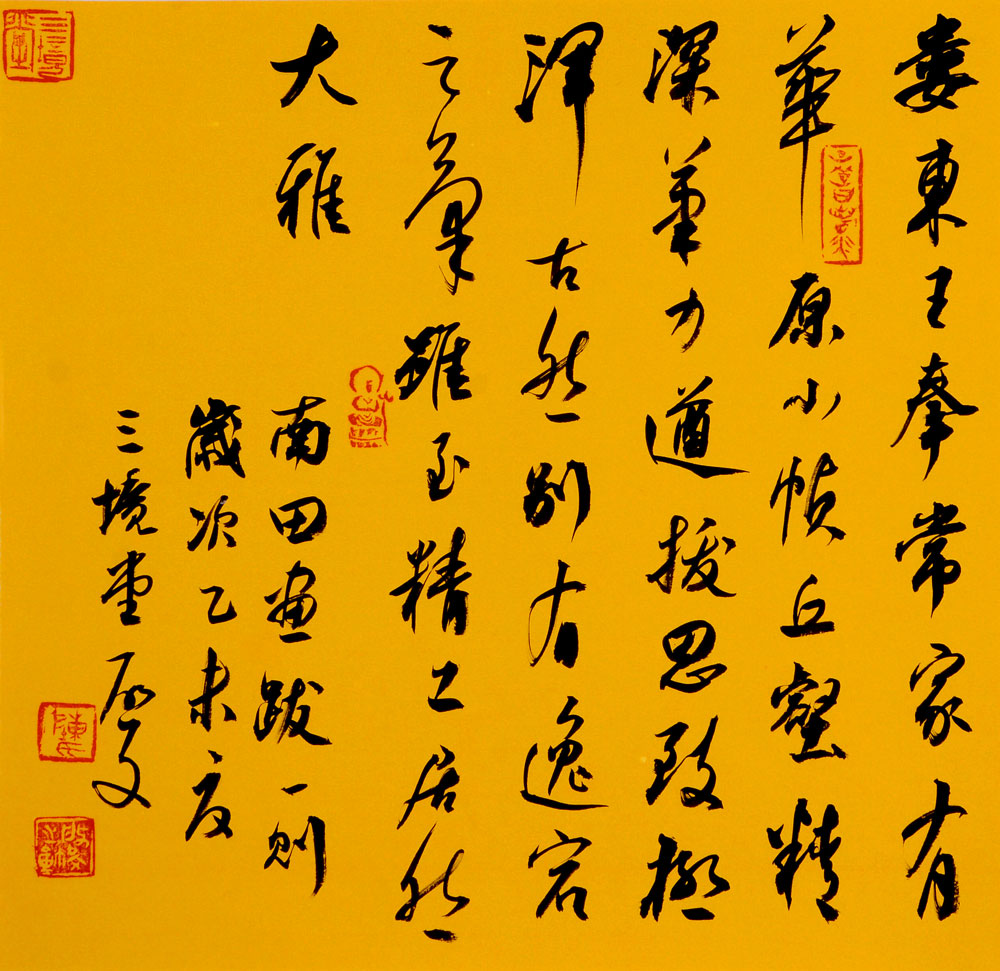 婁東王奉常家有
華原小幀丘壑精
深筆力遒拔思致極
渾古然別有逸宕
之氣雖至精工居然
大雅 南田畫跋一則
歲次乙未夏
三境堂
陳氏